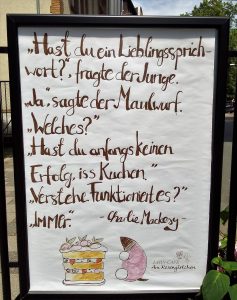 „Hast du ein Lieblingssprich-
wort?", fragte der Junge.
„Ja", sagte der Maulwurf.
„Welches?"
„Hast du anfangs keinen
Erfolg, iss Kuchen."
„Verstehe. Funktioniert es?"
„Immer." - Charlie Mackesy -
Am Rosengärtchen